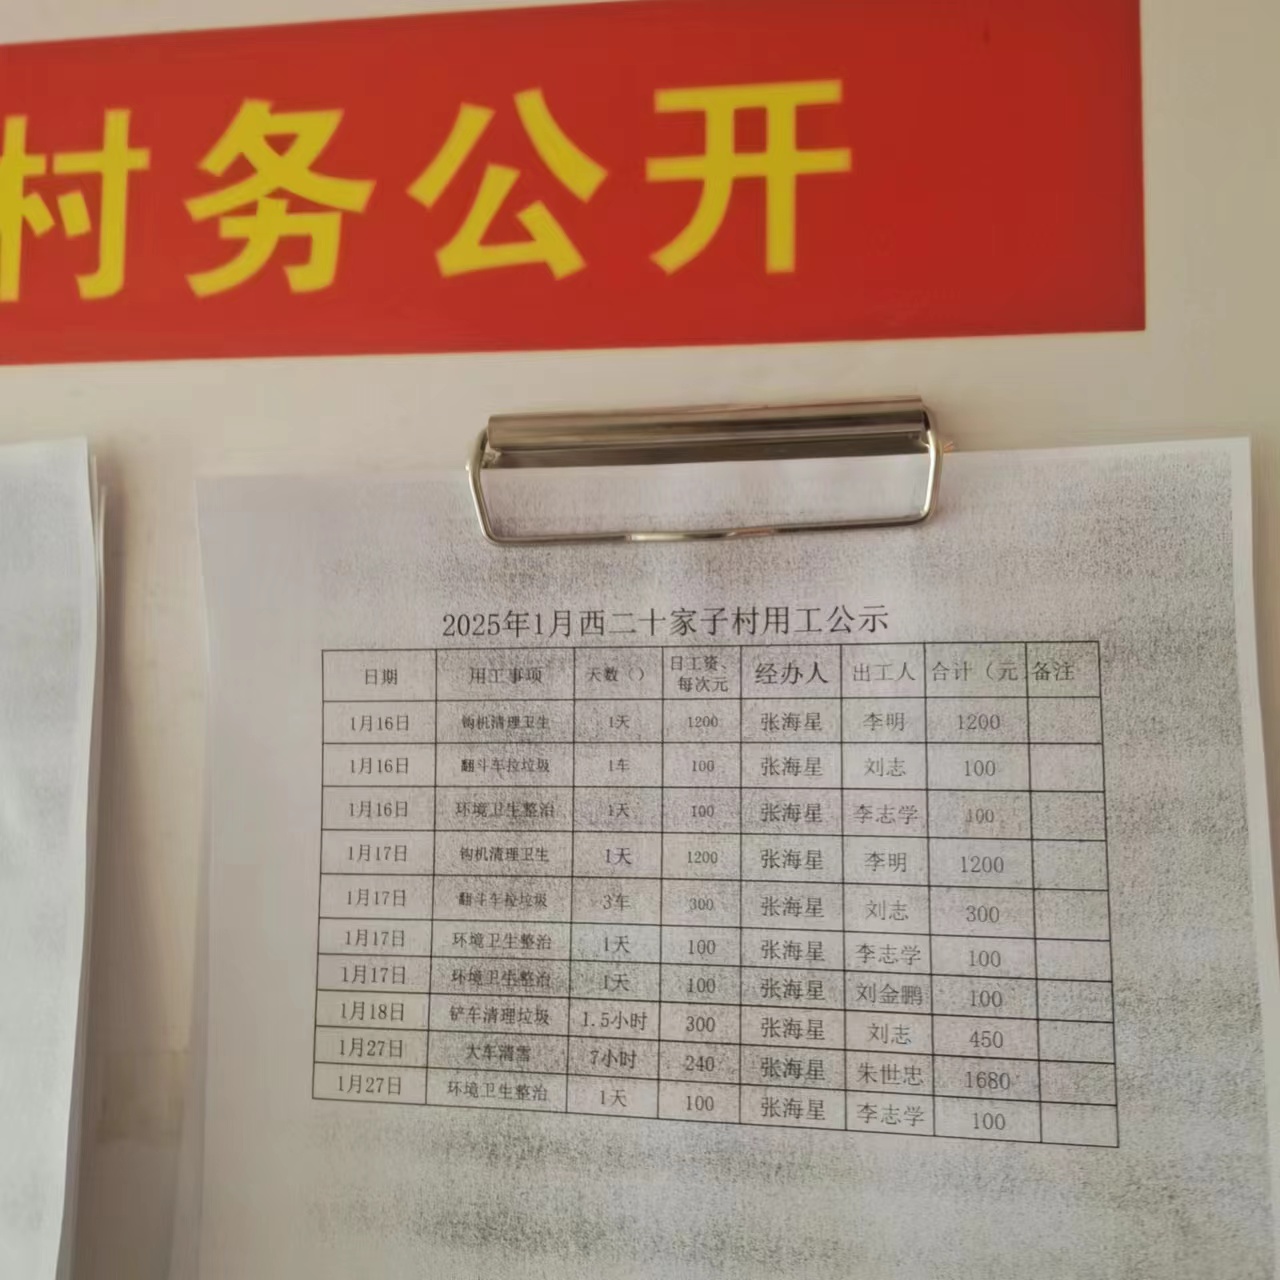 村务公开
2025年1月西二十家子村用工公示
日期 用工事项 天数（） 日工资、每次元 经办人 出工人 合计（元 备注
1月16日 钩机清理卫生 1天 1200 张海星 李明 1200
1月16日 翻斗车拉垃圾 1车 100 张海星 刘志 100
1月16日 环境卫生整治 1天 100 张海星 李志学 100
1月17日 钩机清理卫生 1天 1200 张海星 李明 1200
1月17日 翻斗车拉垃圾 3车 300 张海星 刘志 300
1月17日 环境卫生整治 1天 100 张海星 李志学 100
1月17日 环境卫生整治 1天 100 张海星 刘金鹏 100
1月18日 铲车清理垃圾 1.5小时 300 张海星 刘志 450
1月27日 大车清雪 7小时 240 张海星 朱世忠 1680
1月27日 环境卫生整治 1天 100 张海星 李志学 100